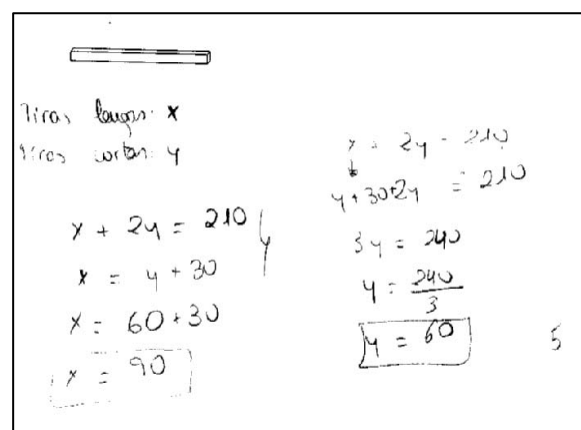 Tiras largas: x
Tiras cortas: y
x + 2y = 210
x = y + 30
x = 60 + 30
x = 90
x + 2y = 210
y + 30 + 2y = 210
3y = 240
y = 240/3
y = 60
5